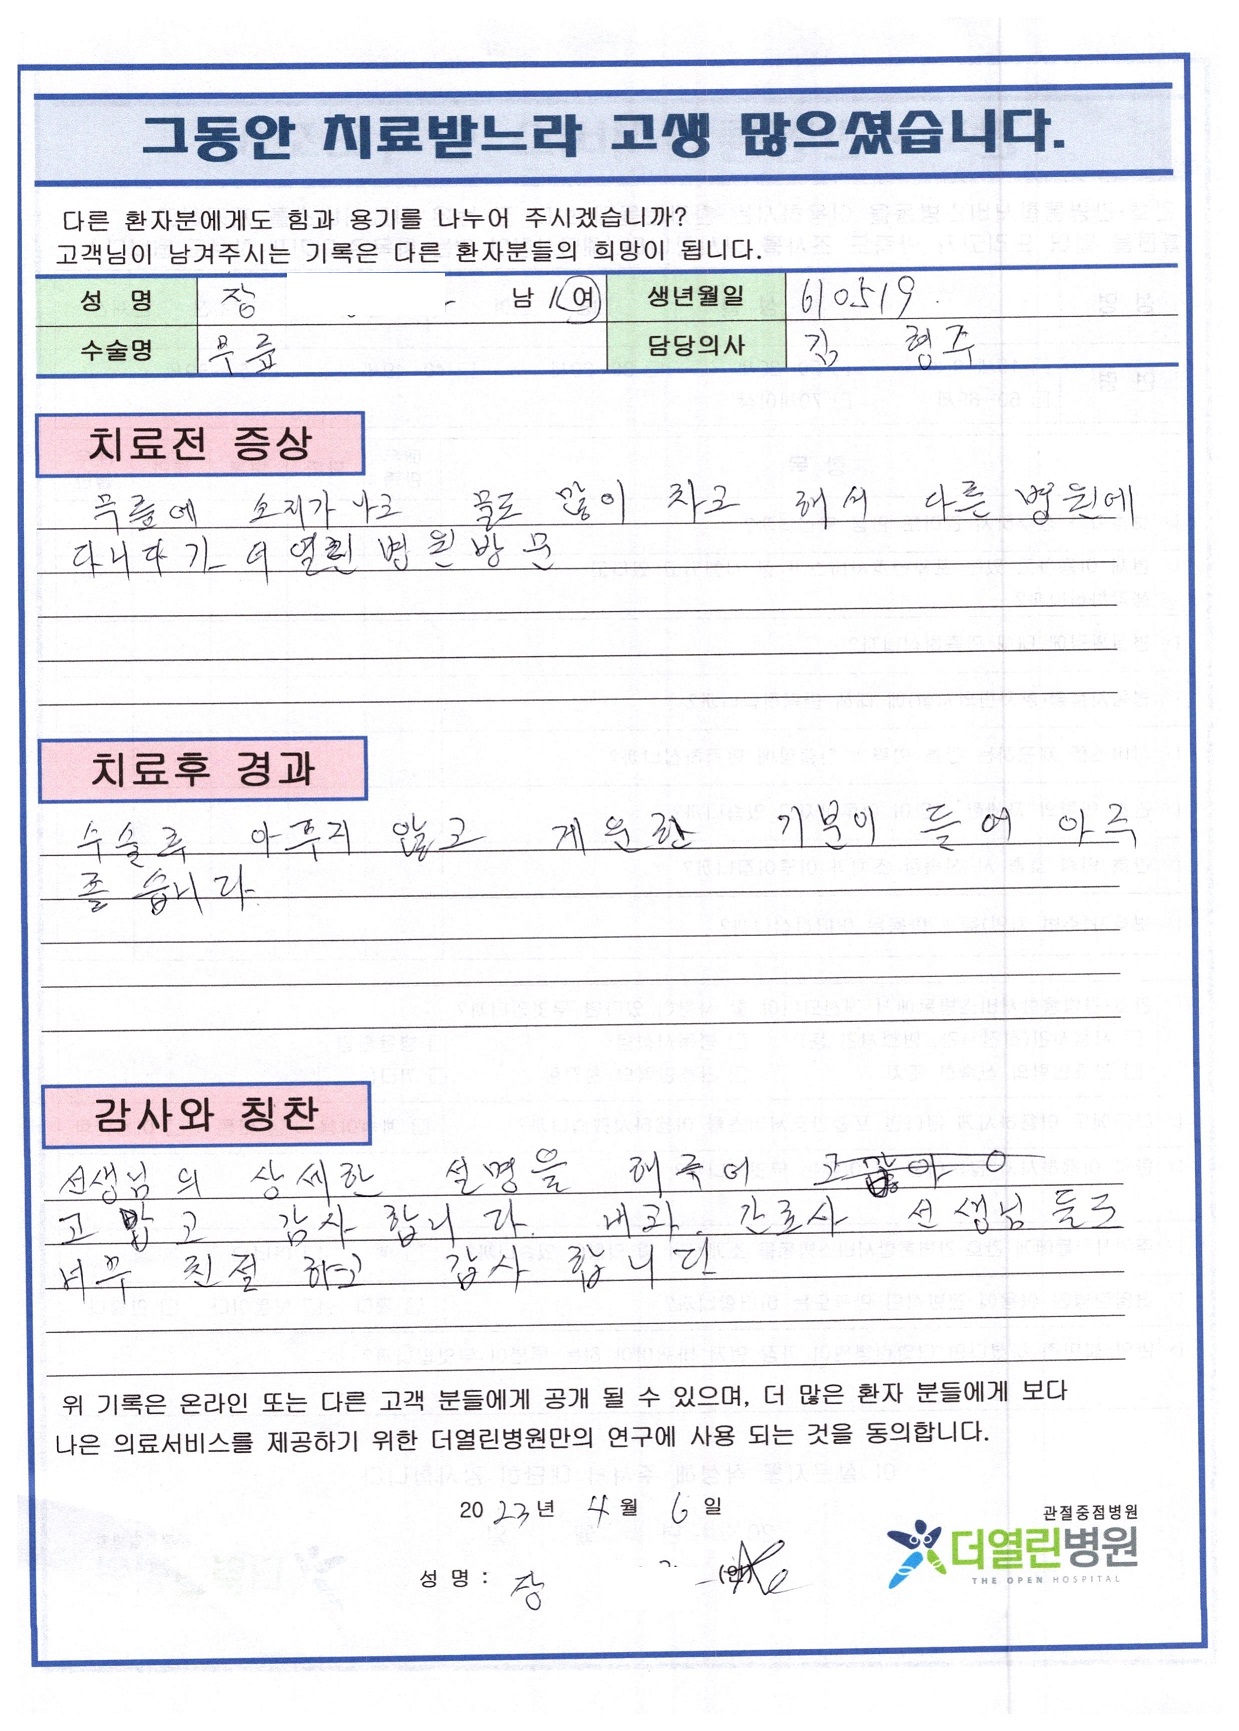 그동안 치료받느라 고생 많으셨습니다.
다른 환자분에게도 힘과 용기를 나누어 주시겠습니까?
고객님이 남겨주시는 기록은 다른 환자분들의 희망이 됩니다.
성 명 장 남 / 여 생년월일 610519.
수술명 무릎 담당의사 김 형주
치료전 증상
무릎에 소리가 나고 물도 많이 차고 해서 다른 병원에
다니다가 더열린병원방문
치료후 경과
수술후 아푸지 않고 게운한 기분이 들어 아주
좋습니다.
감사와 칭찬
선생님의 상세한 설명을 해주어
고맙고 감사합니다. 간로사 선생님들도
너무 친절하고 감사합니다
위 기록은 온라인 또는 다른 고객 분들에게 공개 될 수 있으며, 더 많은 환자 분들에게 보다
나은 의료서비스를 제공하기 위한 더열린병원만의 연구에 사용 되는 것을 동의합니다.
2023년 4월 6일
관절중점병원
더열린병원
THE OPEN HOSPITAL
성 명 : 장 (인)